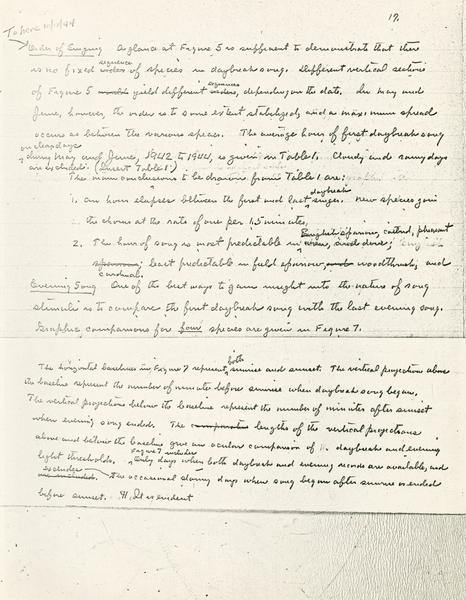 19.
To here 10/10/44
Order of Singing A glance at Figure 5 is sufficient to demonstrate that there
sequence
is no fixed order of species in daybreak song. Different vertical sections
sequences
of Figure 5 would yield different orders, depending on the date. In May and
June, however, the order is to some extent stabilized, and a maximum spread
occurs as between the various species. The average hour of first daybreak song
on clear days
during May and June, 1942 to 1944, is given in Table 1. Cloudy and rainy days
are excluded. (Insert Table 1)
The main conclusions to be drawn from Table 1 are:
daybreak
1. An hour elapses between the first and last singer. New species join
the chorus at the rate of one per 15 minutes.
English sparrow, catbird, pheasant
2. The hour of song is most predictable in wren, and dove;
sparrow; least predictable in field sparrow, and woodthrush, and
cardinal.
Evening Song One of the best ways to gain insight into the nature of song
stimuli is to compare the first daybreak song with the last evening song.
Graphic comparisons for four species are given in Figure 7.
both
The horizontal baselines in Figure 7 represent sunrise and sunset. The vertical projections above
the baseline represent the number of minutes before sunrise when daybreak song began.
The vertical projections below the baseline represent the number of minutes after sunset
when evening song ended. The comparative lengths of the vertical projections
above and below the baseline give an ocular comparison of daybreak and evening
Figure 7 includes
light thresholds. Only days when both daybreak and evening records are available, and
excludes
are included. the occasional stormy days when song began after sunrise or ended
before sunset. It is evident